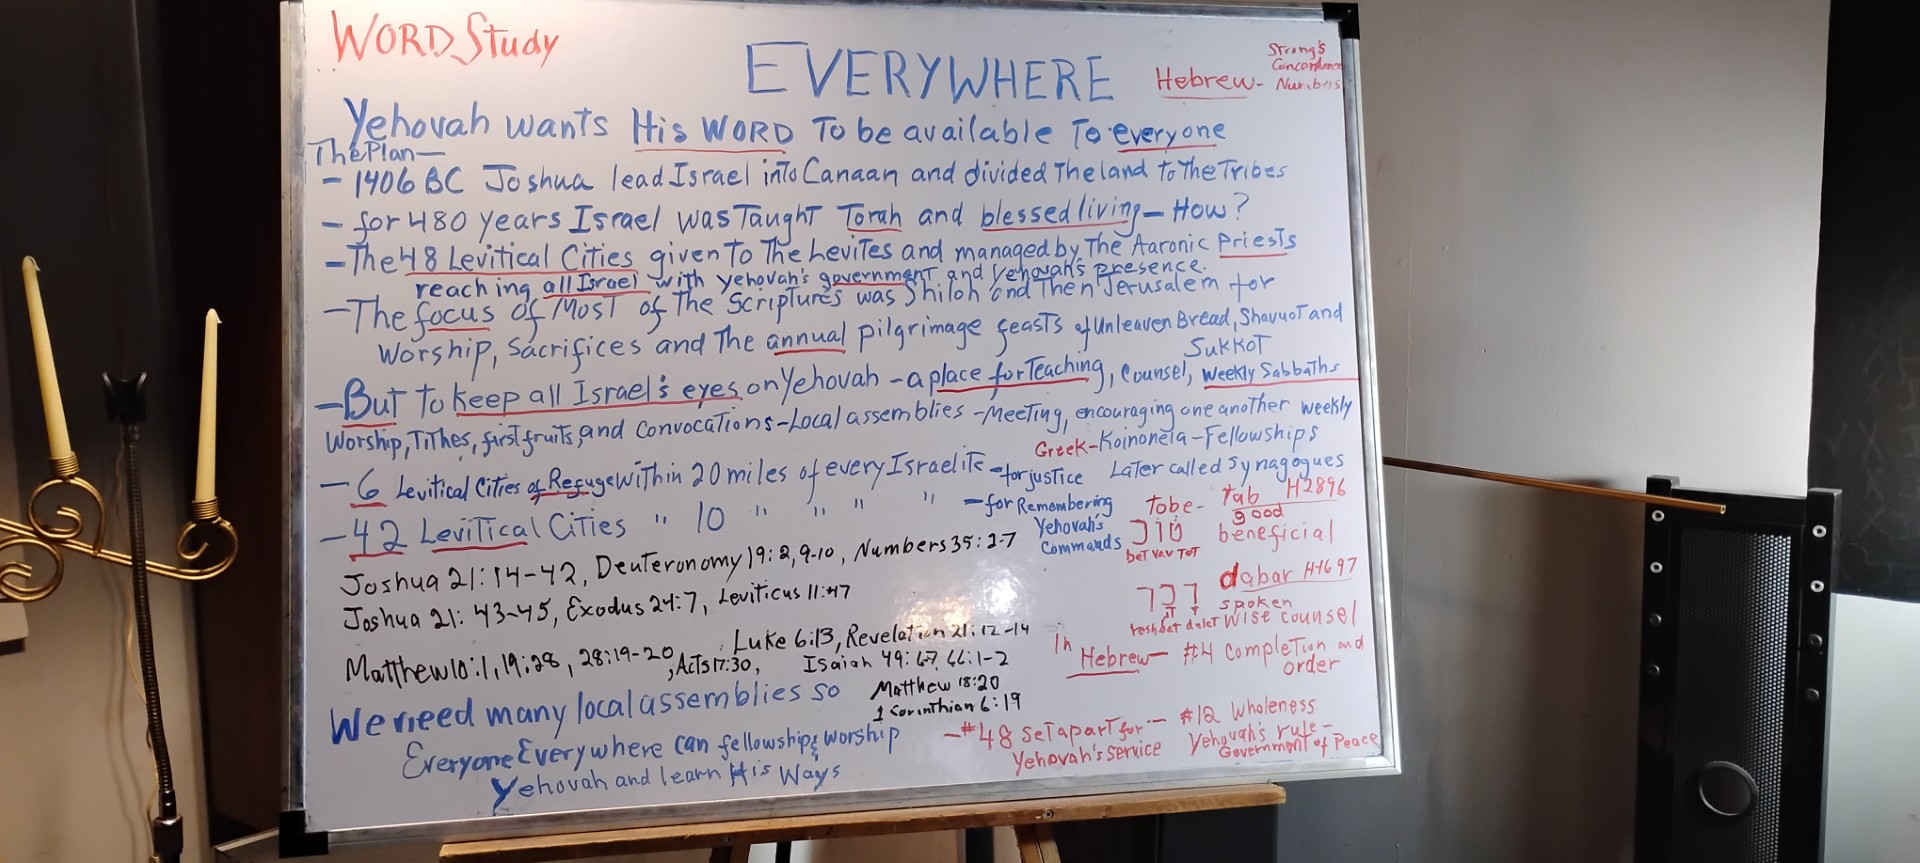 WORD Study
EVERYWHERE
Hebrew-
Strong's
Concordance
Numbers
Yehovah wants His WORD To be available To everyone
The Plan—
- 1406 BC Joshua lead Israel into Canaan and divided The land to The Tribes
- for 480 years Israel was Taught Torah and blessed living - How?
- The 48 Levitical Cities given To The Levites and managed by The Aaronic Priests
reaching all Israel with Yehovah's government and Yehovah's presence.
- The focus of Most of The Scriptures was Shiloh and Then Jerusalem for
Worship, Sacrifices and The annual pilgrimage feasts of Unleaven Bread, Shavuot and
Sukkot
- But to keep all Israel's eyes on Yehovah - a place for Teaching, Counsel, Weekly Sabbaths
Worship, Tithes, first fruits, and convocations - Local assemblies - Meeting, encouraging one another weekly
Greek - Koinoneia - Fellowships
- 6 Levitical Cities of Refuge within 20 miles of every Israelite - for justice
Later called Synagogues
- 42 Levitical Cities " 10 " " " " - for Remembering
Yehovah's
Commands
Joshua 21:14-42, Deuteronomy 19:2,9-10, Numbers 35:2-7
Joshua 21:43-45, Exodus 24:7, Leviticus 11:47
Luke 6:13, Revelation 21:12-14
Matthew 10:1, 19:28, 28:19-20, Acts 17:30, Isaiah 49:6-7, 66:1-2
Matthew 18:20
1 Corinthian 6:19
We need many local assemblies so
Everyone Everywhere can fellowship & worship
Yehovah and learn His Ways
tobe- tab H2896
good
טוב beneficial
bet vav tot
dabar H1697
דבר spoken
resh bet dalet wise counsel
In
Hebrew - #4 completion and
order
- #48 set apart for -- #12 Wholeness
Yehovah's Service Yehovah's rule -
Government of Peace